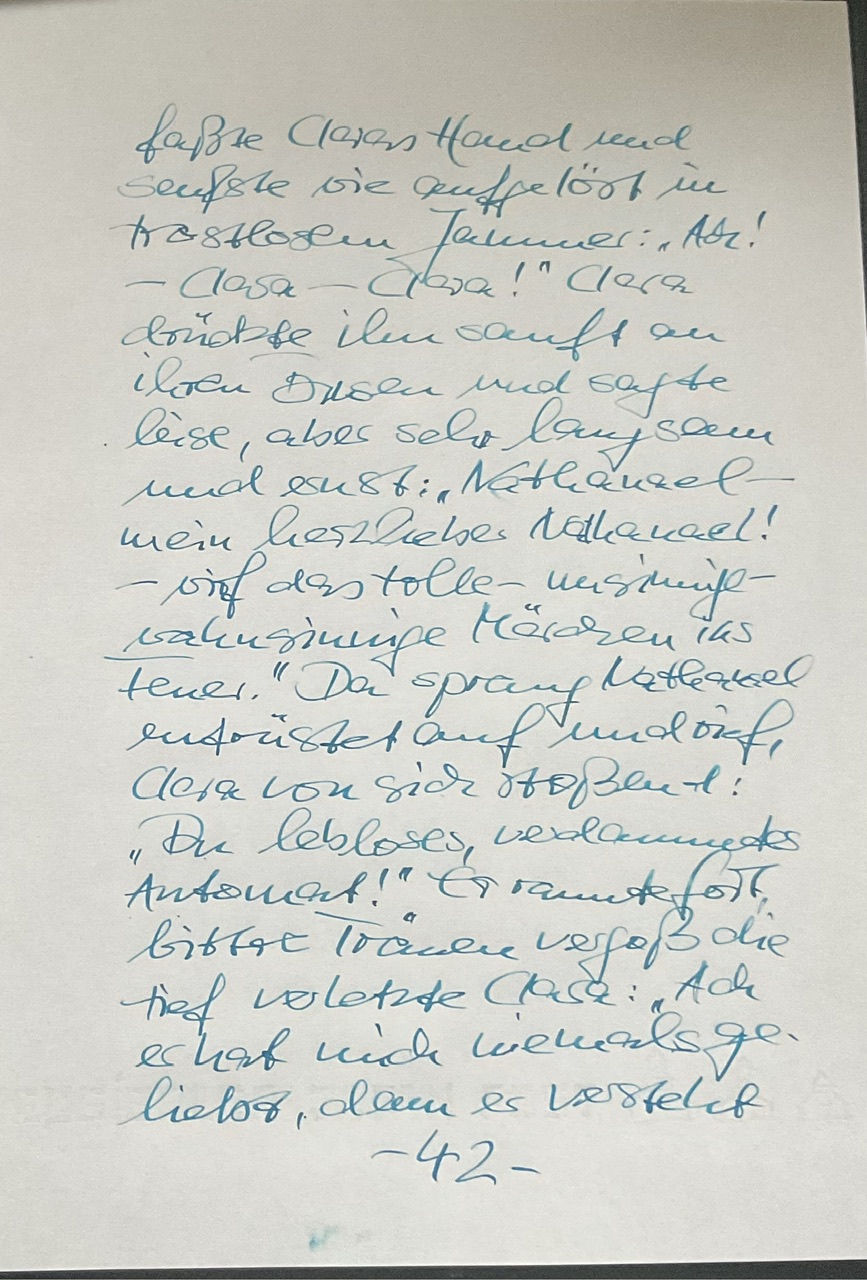 faßte Claras Hand und
seufzte wie aufgelöst in
trostlosem Jammer: „Ach!
— Clara — Clara!" Clara
drückte ihn sanft an
ihren Busen und sagte
leise, aber sehr langsam
und ernst: „Nathanael —
mein herzlieber Nathanael!
— wirf das tolle – unsinnige –
wahnsinnige Märchen ins
Feuer." Da sprang Nathanael
entrüstet auf und rief,
Clara von sich stoßend:
„Du lebloses, verdammtes
Automat!" Er rannte fort,
bittre Tränen vergoß die
tief verletzte Clara: „Ach
er hat mich niemals ge-
liebt, denn er versteht
- 42 -